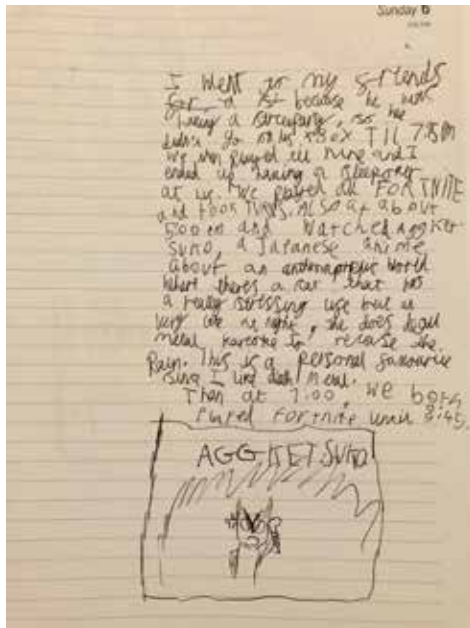 Sunday 6
I went to my friends
for a 1st because he was
having a party, so we
didn't go on his XBOX TIL 7:15
We played till nine and I
ended up having a sleepover
at his. We played on FORTNITE
and took TURNS. ALSO at about
5:00 and Watched Agg ret
suko, a Japanese anime
about an anthropomorphic World
Where theres a that has
a really stressing but is
very at night, she does death
metal karaoke to release the
Pain. This is a personal favourite
sing I like death metal.
Then at 7:00, we both
Played Fortnite until 8:45.
AGGRETSUKO